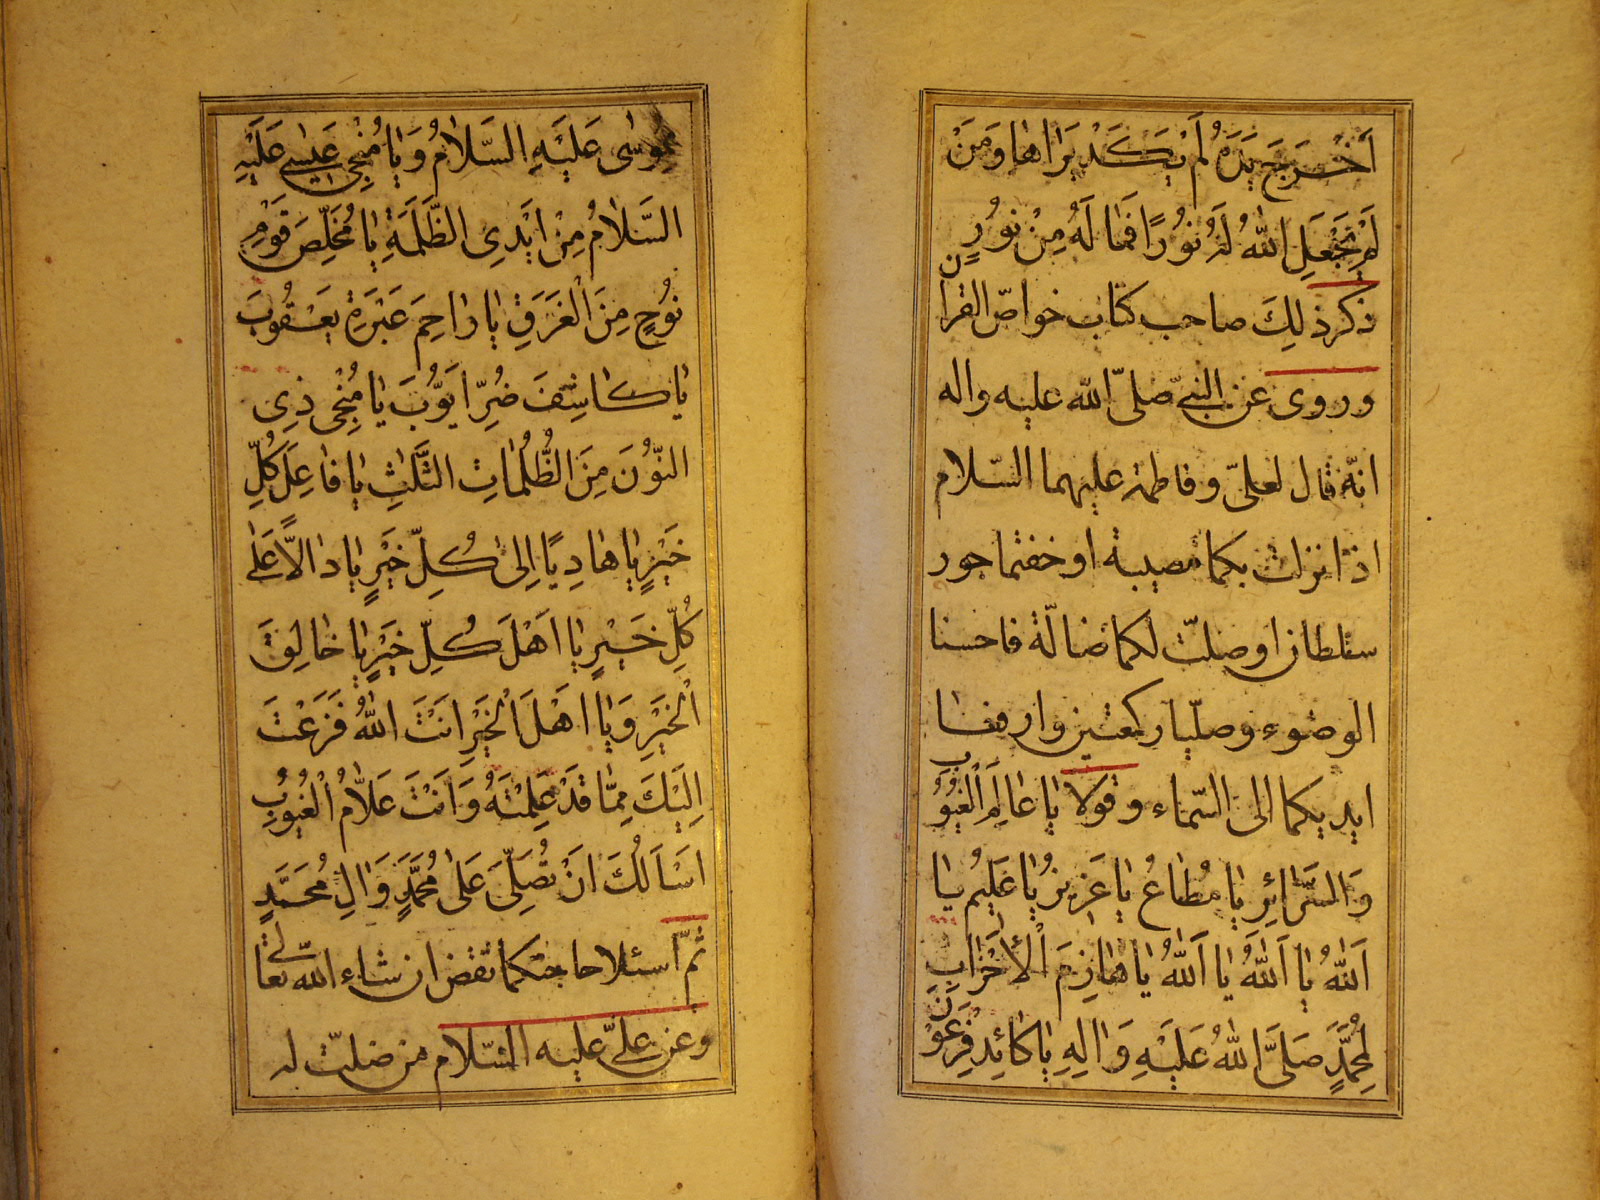 اَخْرَجَ يَدَهُ لَمْ يَكَدْ يَرٰاهٰا وَمَنْ
لَمْ يَجْعَلِ اللهُ لَهُ نُورًا فَمٰا لَهُ مِنْ نُورٍ
ذكر ذلِكَ صاحب كتاب خواصّ القران
وروى عن النبيّ صلّى الله عليه واله
انّه قال لعلىّ وفاطمة عليهما السّلام
اذا نزلت بكما مصيبة او خفتما جور
سلطان او ضلّت لكما ضالّة فاحسنا
الوضوء وصلّيا ركعتين وارفعا
ايديكما الى السّماء وقولا يٰا عٰالِمَ الْغُيُوبِ
وَالسَّرٰائِرِ يٰا مُطٰاعُ يٰا عَزِيزُ يٰا عَلِيمُ يٰا
اَللهُ يٰا اَللهُ يٰا اَللهُ يٰا هٰازِمَ الْأَحْزٰابِ
لِمُحَمَّدٍ صَلَّى اللهُ عَلَيْهِ وَالِهِ يٰا كٰائِدَ فِرْعَوْنَ
لِمُوسٰى عَلَيْهِ السَّلٰامُ وَيٰا مُنْجِيَ عِيسٰى عَلَيْهِ
السَّلٰامُ مِنْ اَيْدِى الظَّلَمَةِ يٰا مُخَلِّصَ قَوْمِ
نُوحٍ مِنَ الْغَرَقِ يٰا رٰاحِمَ عَبْرَةِ يَعْقُوبَ
يٰا كٰاشِفَ ضُرِّ اَيُّوبَ يٰا مُنْجِىَ ذِى
النُّونَ مِنَ الظُّلُمٰاتِ الثَّلٰثِ يٰا فٰاعِلَ كُلِّ
خَيْرٍ يٰا هٰادِيًا اِلىٰ كُلِّ خَيْرٍ يٰا دٰالًّا عَلىٰ
كُلِّ خَيْرٍ يٰا اَهْلَ كُلِّ خَيْرٍ يٰا خٰالِقَ
الْخَيْرِ وَيٰا اَهْلَ الْخَيْرِ اَنْتَ اللهُ فَزَعْتَ
اِلَيْكَ مِمّٰا قَدْ عَلِمْتَهُ وَاَنْتَ عَلّٰامُ الْغُيُوبِ
اَسْاَلُكَ اَنْ تُصَلِّىَ عَلىٰ مُحَمَّدٍ وَالِ مُحَمَّدٍ
ثمّ اسئلا حاجتكما تقض ان شاء الله تعالى
وعن علىّ عليه السّلام من ضلّت له